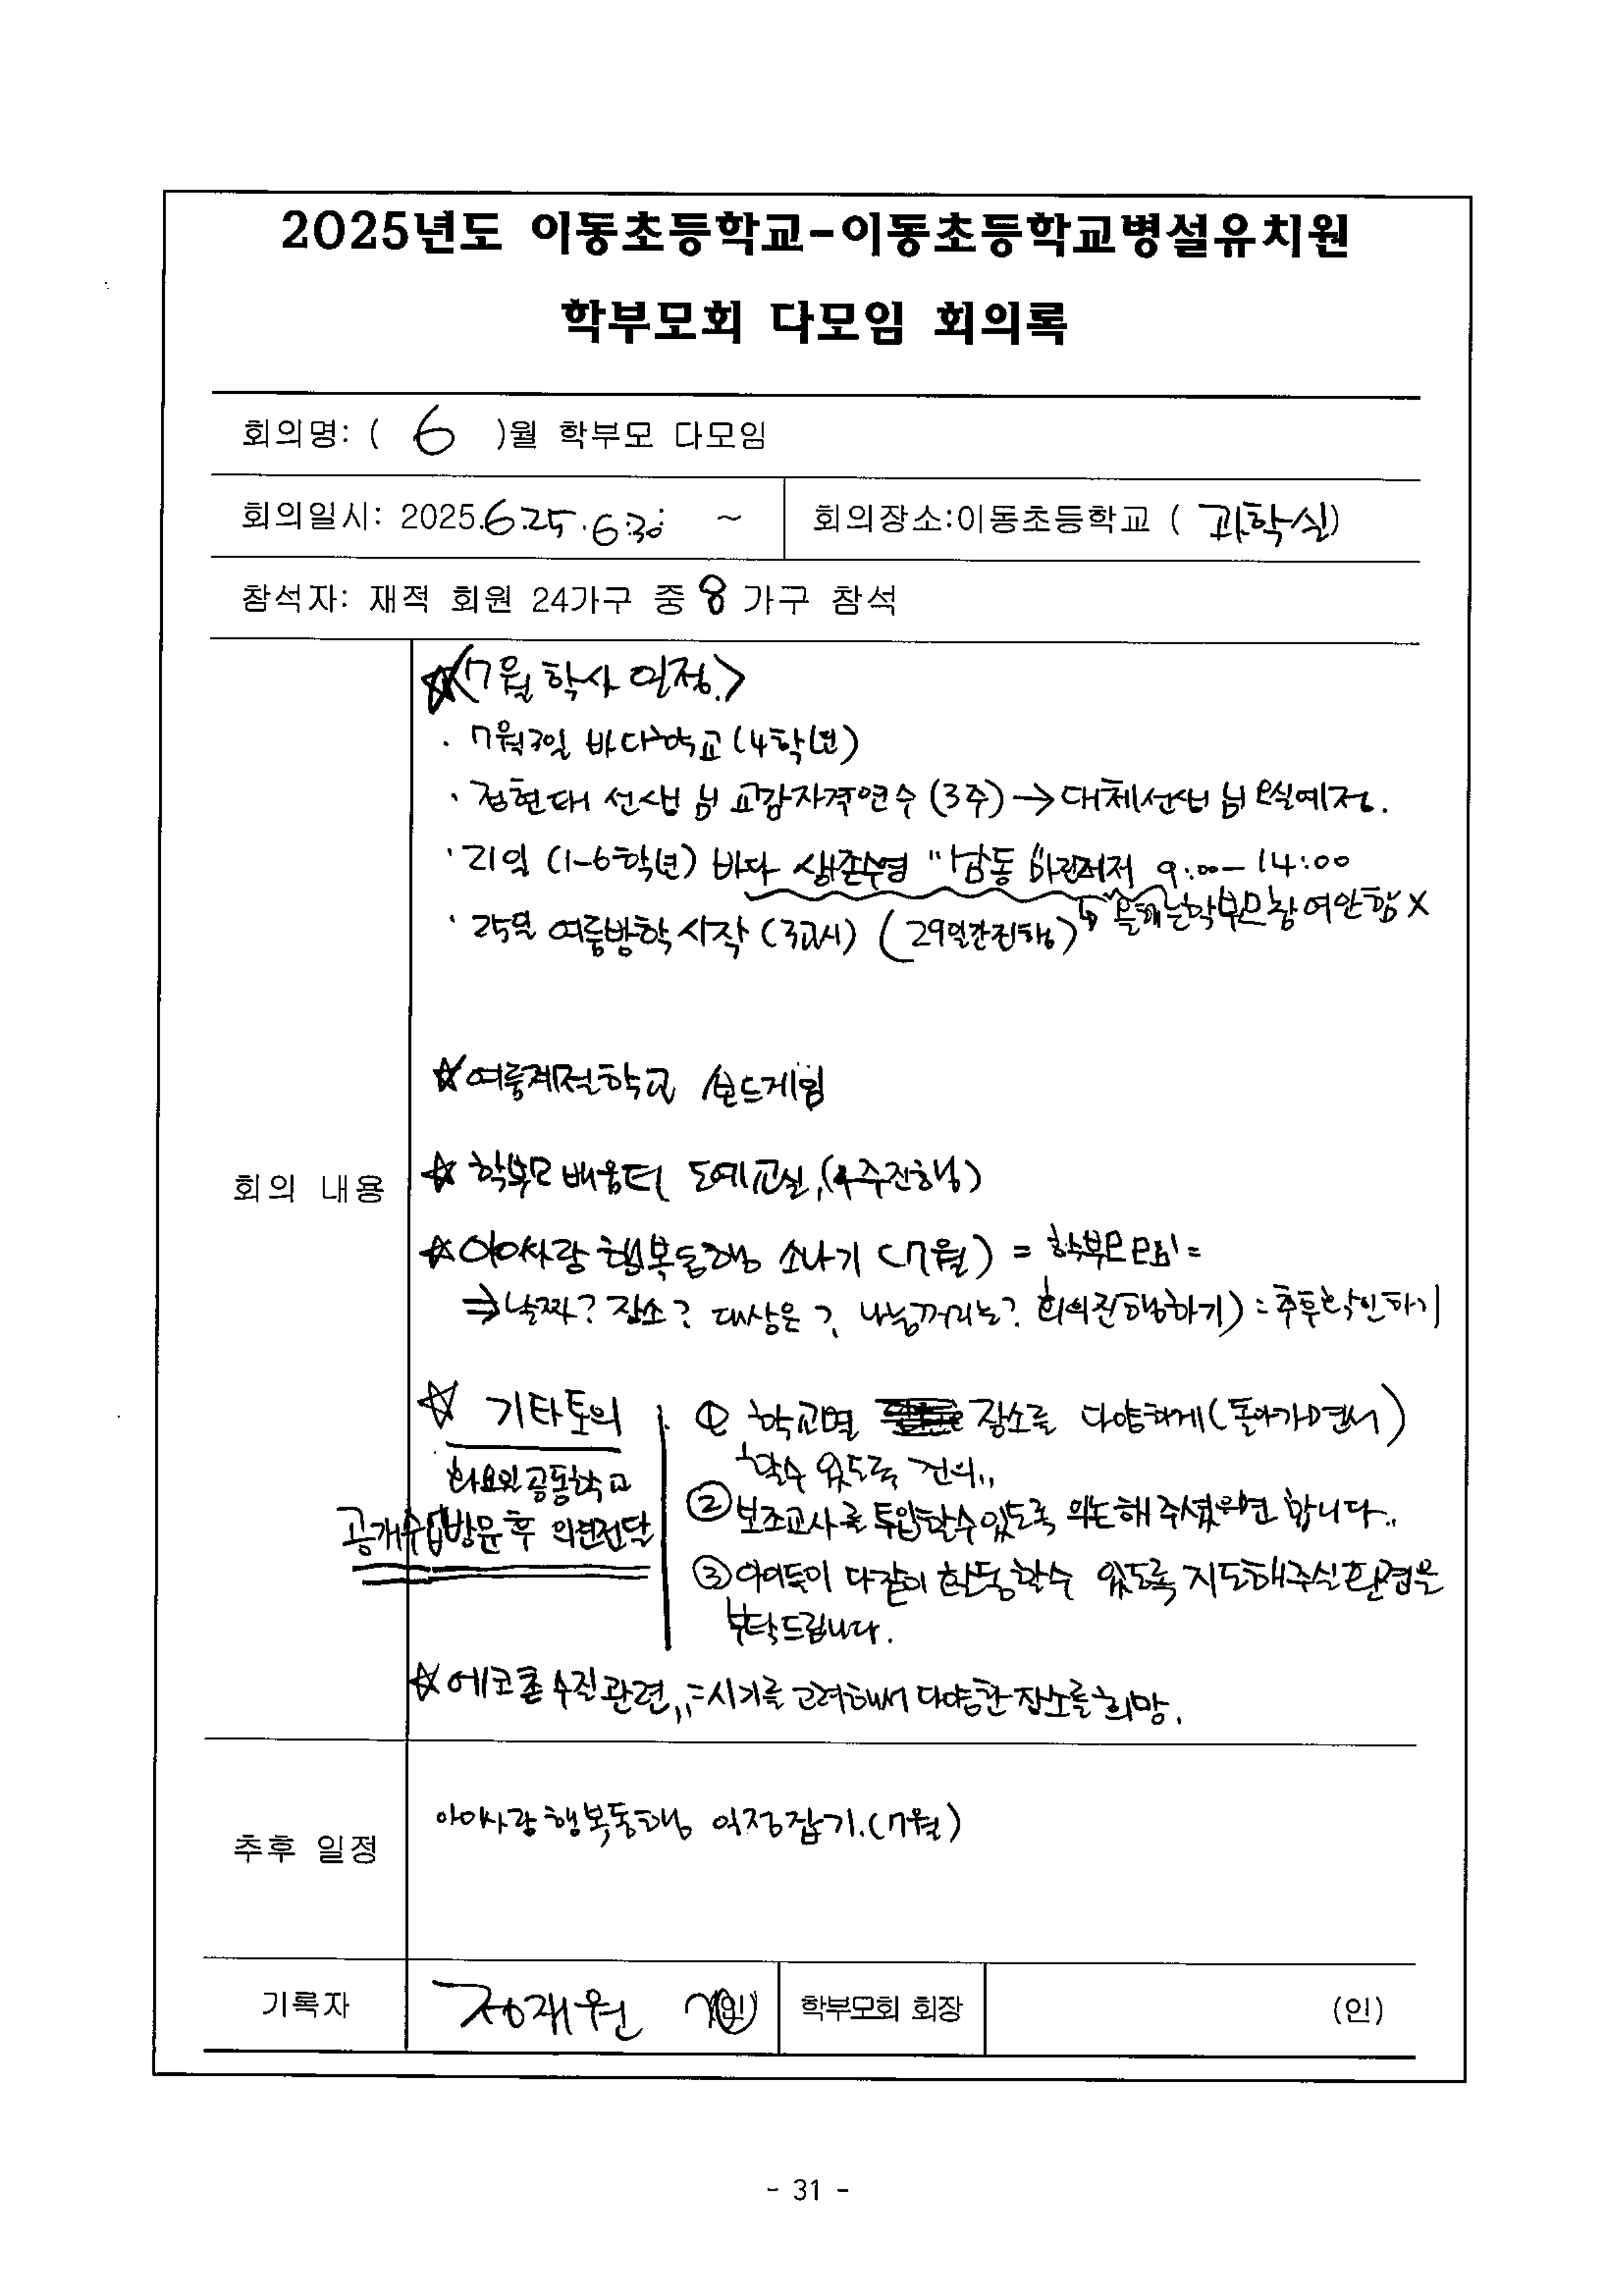 2025년도 이동초등학교-이동초등학교병설유치원
학부모회 다모임 회의록
회의명: ( 6 )월 학부모 다모임
회의일시: 2025.6.25.6:30 ~ 회의장소:이동초등학교 ( 과학실)
참석자: 재적 회원 24가구 중 8 가구 참석
☆<7월 학사 일정.>
· 7월3일 바다학교 (4학년)
· 정현대 선생님 교감자격연수 (3주) → 대체선생님 오실예정.
· 21일 (1-6학년) 바다 생존수영 "남동 마린레저 9:00-14:00
↳ 올해는학부모참여안함 X
· 25일 여름방학 시작 (3교시) (29일간진행)
☆여름계절학교 보드게임
회의 내용
☆ 학부모 배움터 도예교실,(4주진행)
☆아이사랑 행복동행 소나기 (7월) = 학부모모임 =
⇒날짜? 장소? 대상은?, 나눔꺼리는? 회의진행하기) = 추후확인하기
☆ 기타토의
화요일공동학교
공개수업방문 후 의견전달
① 학교별 장소를 다양하게(돌아가면서)
할수 있도록 건의,,
②보조교사를 투입할수있도록 의논해주셨으면 합니다.,
③아이들이 다같이 활동할수 있도록 지도해주실환경을
부탁드립니다.
☆에코촌 수진관련,,=시기를 고려해서 다양한장소를희망.
추후 일정
아이사랑행복동행 일정잡기.(7월)
기록자 정재원 (인) 학부모회 회장 (인)
- 31 -